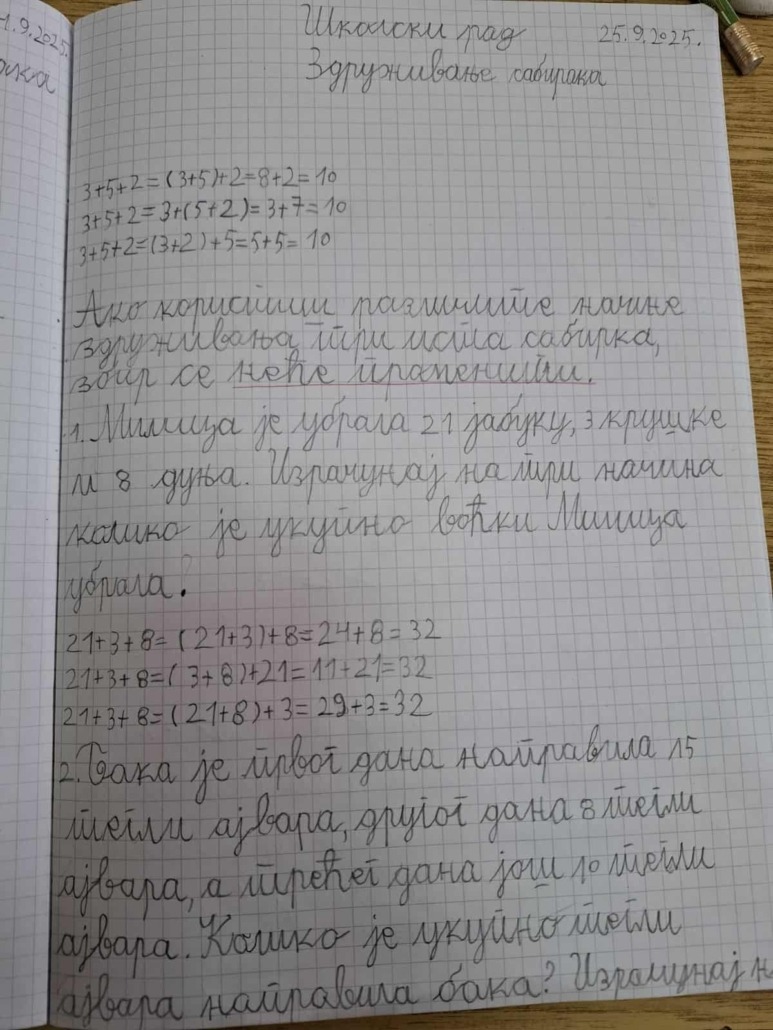 1.9.2025.
Школски рад 25.9.2025.
Здруживање сабирака
3+5+2=(3+5)+2=8+2=10
3+5+2=3+(5+2)=3+7=10
3+5+2=(3+2)+5=5+5=10
Ако користиш различите начине
здруживања три иста сабирка,
збир се неће променити.
1. Милица је убрала 21 јабуку, 3 крушке
и 8 дуња. Израчунај на три начина
колико је укупно воћки Милица
убрала?
21+3+8=(21+3)+8=24+8=32
21+3+8=(3+8)+21=11+21=32
21+3+8=(21+8)+3=29+3=32
2. Бака је првог дана направила 15
тегли ајвара, другог дана 8 тегли
ајвара, а трећег дана још 10 тегли
ајвара. Колико је укупно тегли
ајвара направила бака? Израчунај н